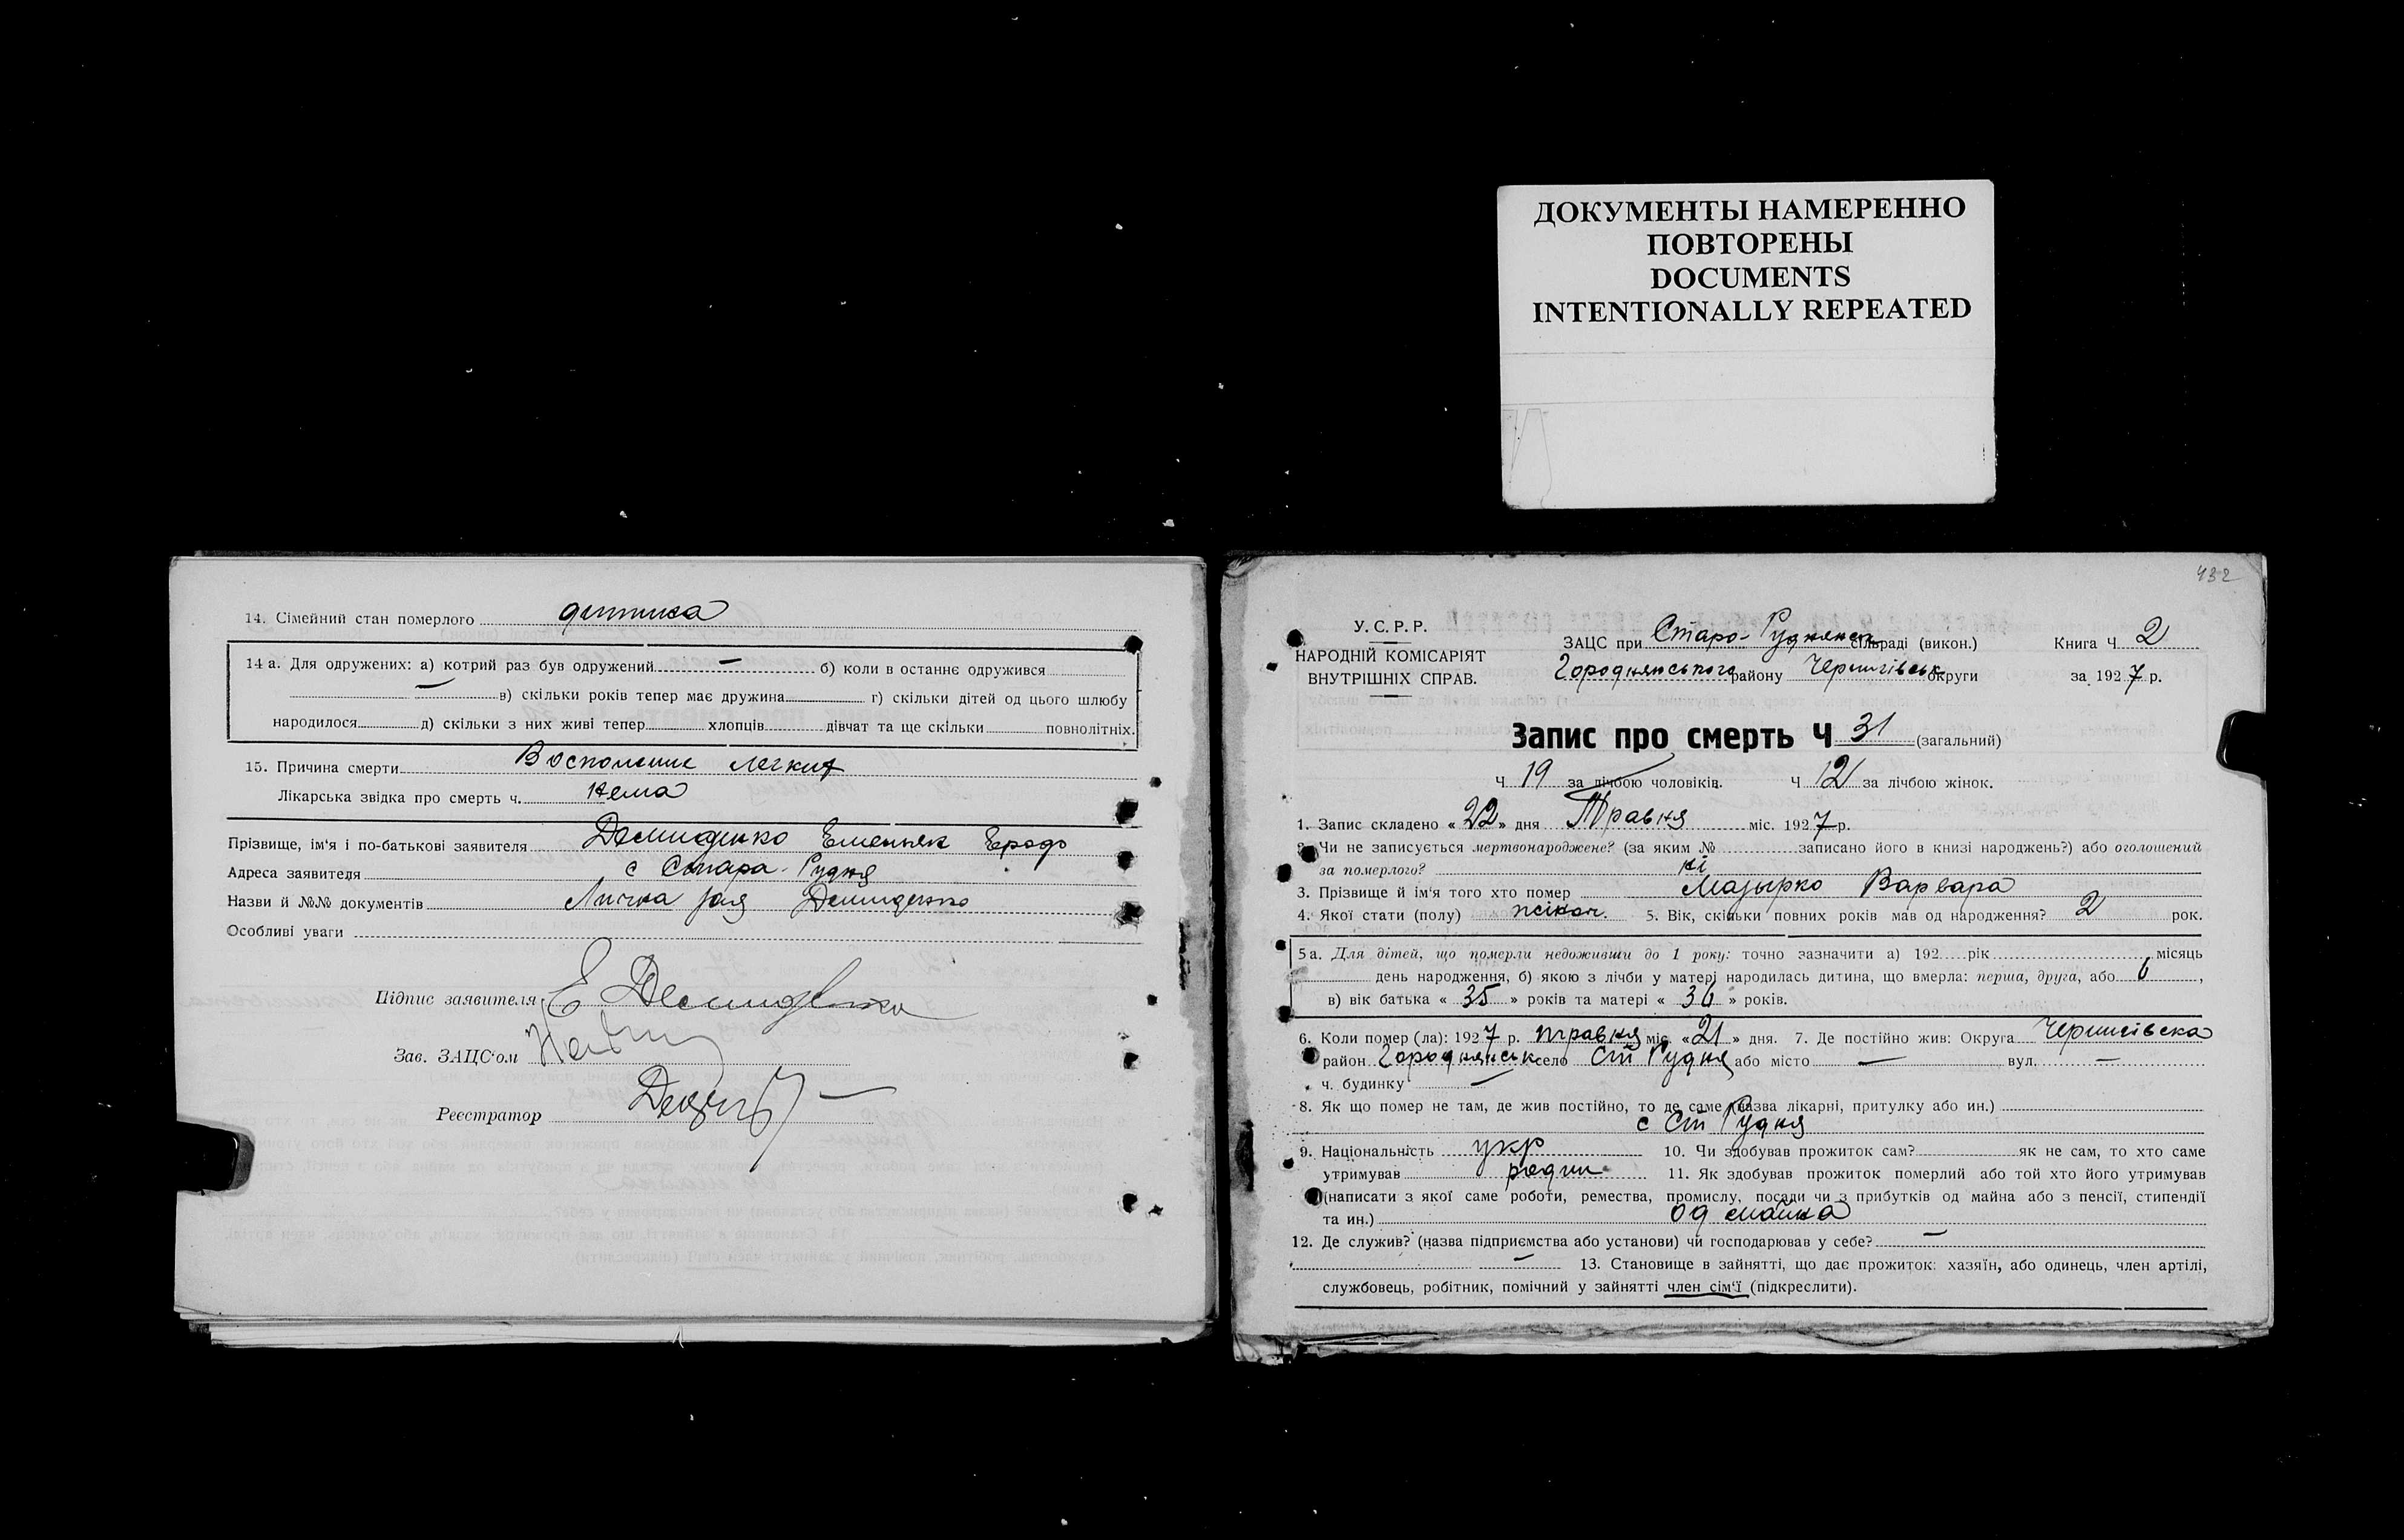 ДОКУМЕНТЫ НАМЕРЕННО
ПОВТОРЕНЫ
DOCUMENTS
INTENTIONALLY REPEATED
14. Сімейний стан померлого дитина
14 а. Для одружених: а) котрий раз був одружений — б) коли в останнє одружився
— в) скільки років тепер має дружина г) скільки дітей од цього шлюбу
народилося д) скільки з них живі тепер хлопців дівчат та ще скільки повнолітніх.
15. Причина смерти легких
Лікарська звідка про смерть ч. нема
Прізвище, ім'я і по-батькові заявителя Демиденко
Адреса заявителя с Стара-Рудня
Назви й №№ документів Лична Демиденко
Особливі уваги
Підпис заявителя Е Демиденко
Зав. ЗАЦС'ом
Реєстратор
432
У. С. Р. Р.
НАРОДНІЙ КОМІСАРІЯТ
ВНУТРІШНІХ СПРАВ.
ЗАЦС при Старо-Руднянск сільраді (викон.) Книга Ч. 2
Городнянського району Чернигівськ округи за 1927 р.
Запис про смерть Ч 31 (загальний)
Ч 19 за лічбою чоловіків. Ч 12 за лічбою жінок.
1. Запис складено «22» дня Травня міс. 1927 р.
2. Чи не записується мертвонароджене? (за яким № записано його в книзі народжень?) або оголошений
за померлого? ні
3. Прізвище й ім'я того хто помер Мазырко Варвара
4. Якої стати (полу) жіноч. 5. Вік, скільки повних років мав од народження? 2 рок.
5 а. Для дітей, що померли недоживши до 1 року: точно зазначити а) 192 рік місяць
день народження, б) якою з лічби у матері народилась дитина, що вмерла: перша, друга, або 6,
в) вік батька «35» років та матері «36» років.
6. Коли помер (ла): 1927 р. травня міс. «21» дня. 7. Де постійно жив: Округа Чернигівска
район Городнянськ село Ст Рудня або місто — вул. —
ч. будинку —
8. Як що помер не там, де жив постійно, то де саме (назва лікарні, притулку або ин.)
с Ст Рудня
9. Національність укр 10. Чи здобував прожиток сам? як не сам, то хто саме
утримував родит 11. Як здобував прожиток померлий або той хто його утримував
(написати з якої саме роботи, ремества, промислу, посади чи з прибутків од майна або з пенсії, стипендії
та ин.) од майна
12. Де служив? (назва підприємства або установи) чи господарював у себе? —
— 13. Становище в зайнятті, що дає прожиток: хазяїн, або одинець, член артілі,
службовець, робітник, помічний у зайнятті член сім'ї (підкреслити).